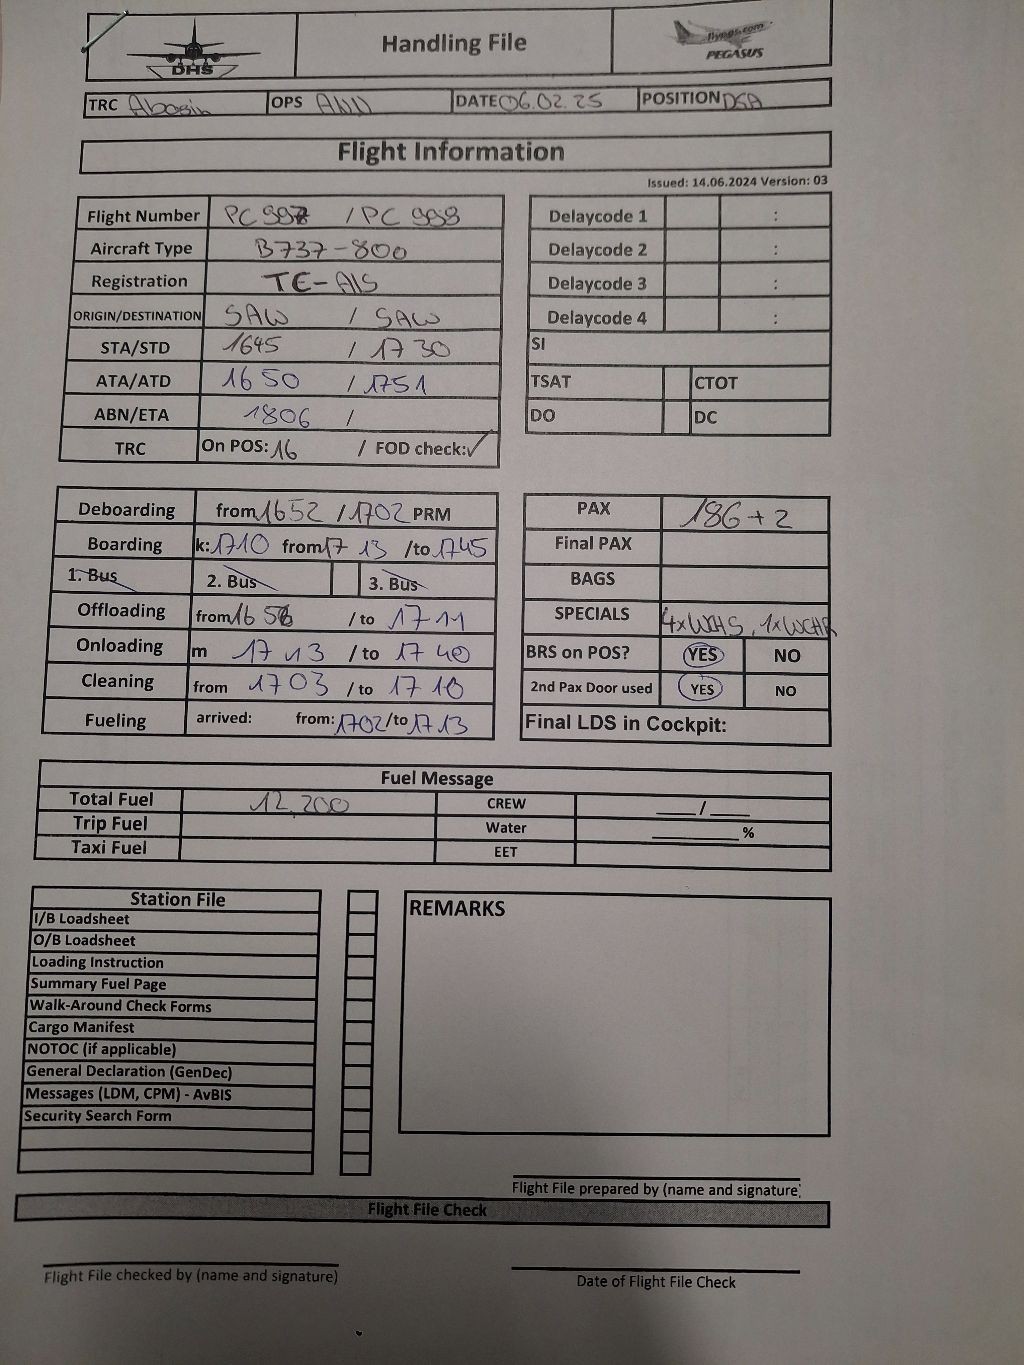 DHS
Handling File
flypgs.com
PEGASUS
TRC Abasin OPS ANN DATE 06.02.25 POSITION D5A
Flight Information
Issued: 14.06.2024 Version: 03
Flight Number PC 997 / PC 998
Aircraft Type B737-800
Registration TC-AIS
ORIGIN/DESTINATION SAW / SAW
STA/STD 1645 / 1730
ATA/ATD 1650 / 1751
ABN/ETA 1806 /
TRC On POS: 16 / FOD check: ✓
Delaycode 1 :
Delaycode 2 :
Delaycode 3 :
Delaycode 4 :
SI
TSAT CTOT
DO DC
Deboarding from 1652 / 1702 PRM
Boarding k: 1710 from 17 13 /to 1745
1. Bus 2. Bus 3. Bus
Offloading from 16 56 / to 17 11
Onloading m 17 13 / to 17 40
Cleaning from 1703 / to 1710
Fueling arrived: from: 1702 /to 1713
PAX 186 + 2
Final PAX
BAGS
SPECIALS 4xWCHS, 1xWCHR
BRS on POS? YES NO
2nd Pax Door used YES NO
Final LDS in Cockpit:
Fuel Message
Total Fuel 12,200 CREW ___/___
Trip Fuel Water ________%
Taxi Fuel EET
Station File
I/B Loadsheet
O/B Loadsheet
Loading Instruction
Summary Fuel Page
Walk-Around Check Forms
Cargo Manifest
NOTOC (if applicable)
General Declaration (GenDec)
Messages (LDM, CPM) - AvBIS
Security Search Form
REMARKS
Flight File prepared by (name and signature)
Flight File Check
Flight File checked by (name and signature)
Date of Flight File Check